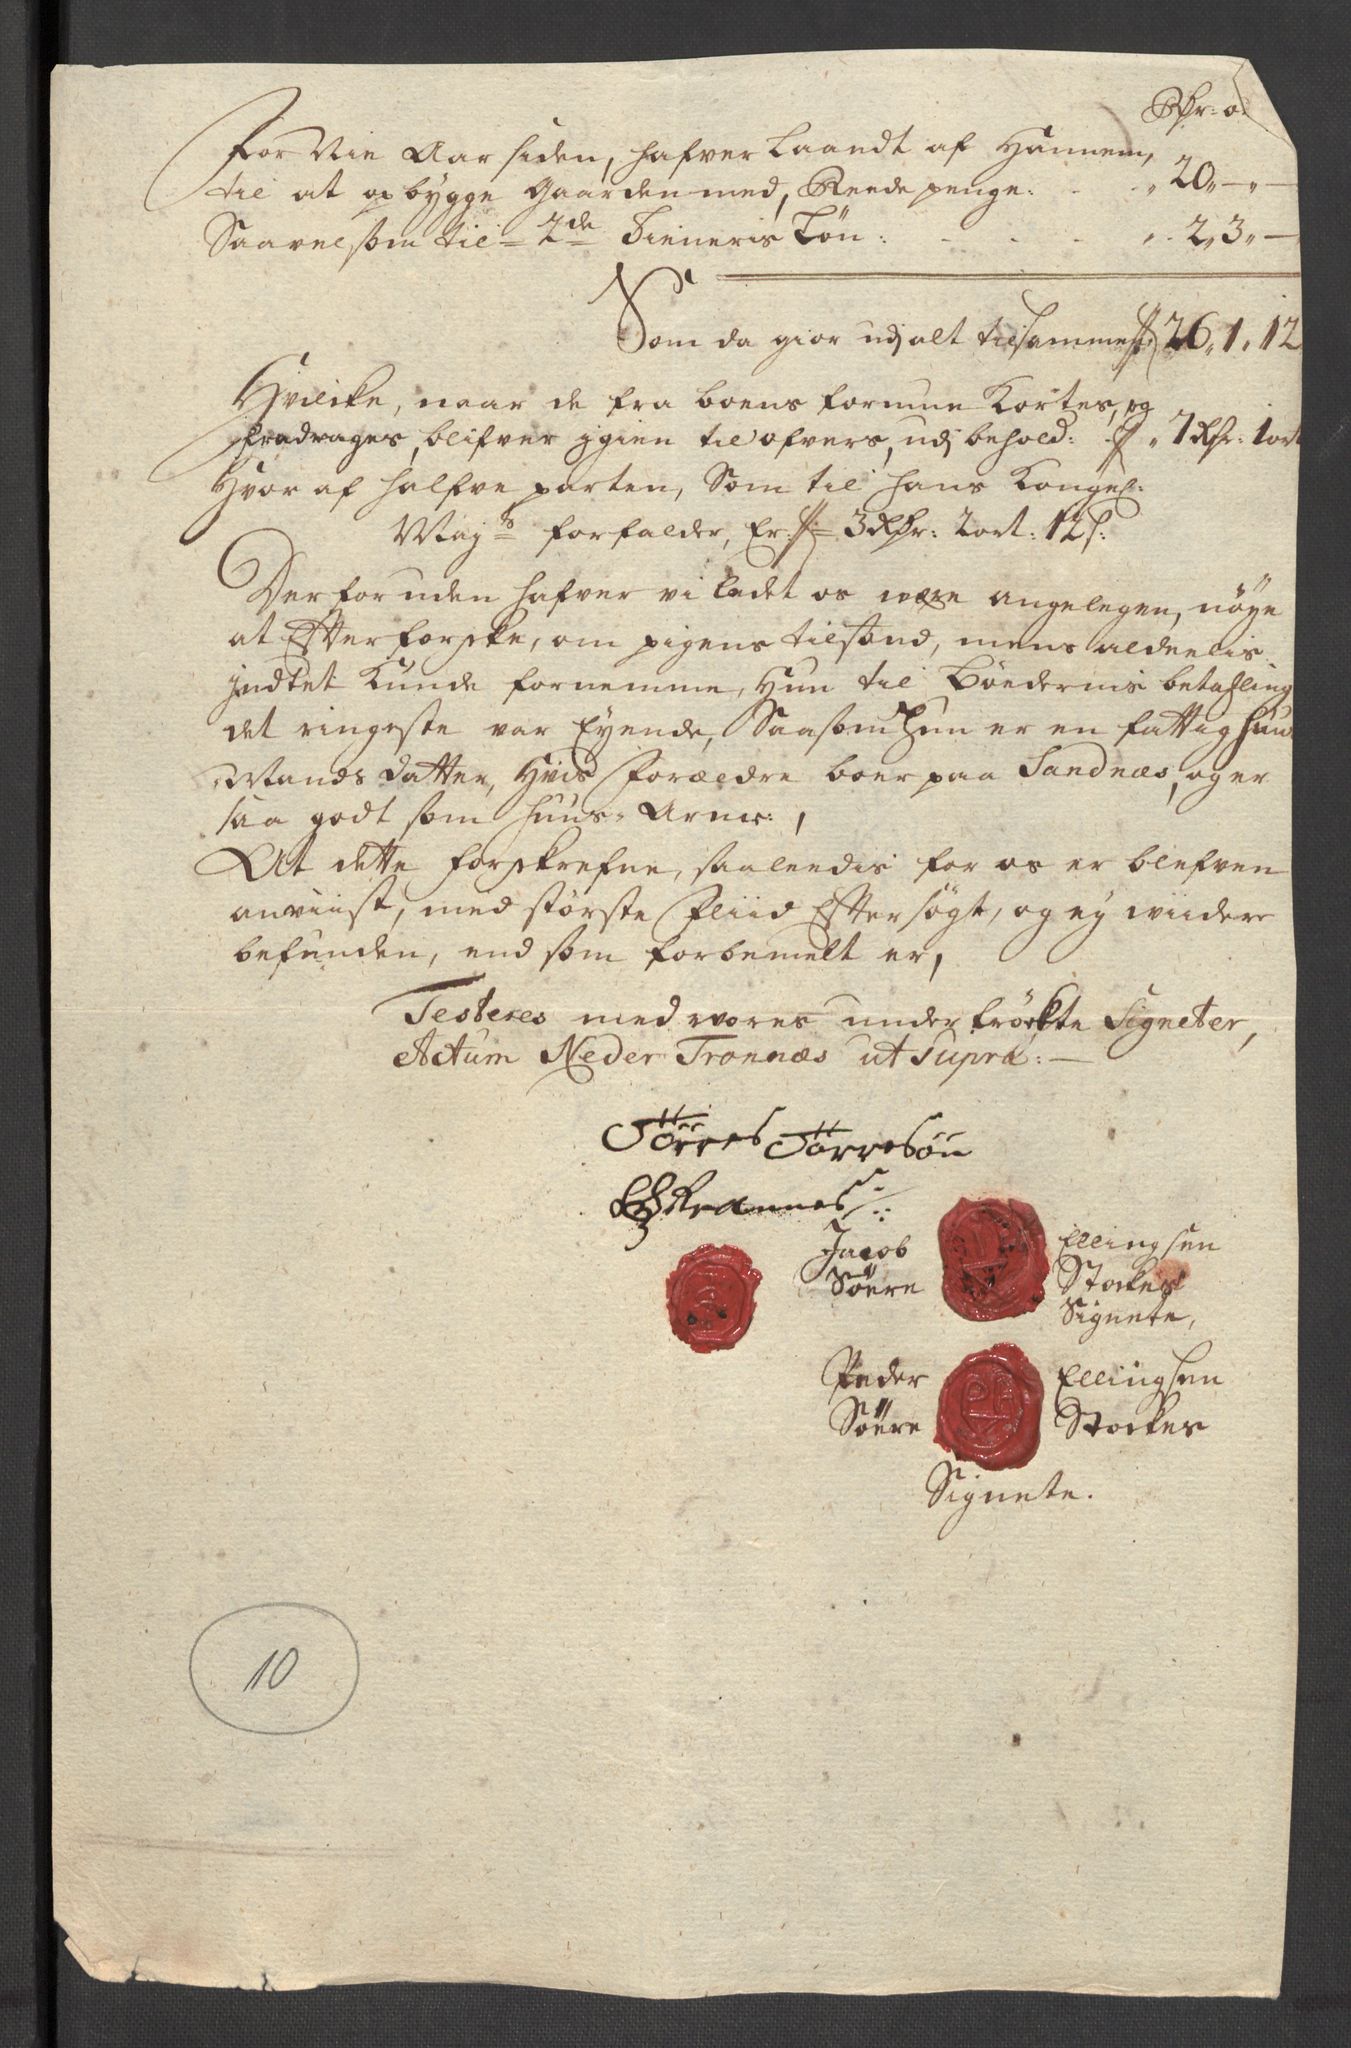 Rdr: o
For Nie Aar siden, hafver Laandt af Hannem,
til at opbygge Gaarden med, Reede penge: „ 20„ — „ —
Saavelsom til 2de Tieneris Løn: „ 2„ 3„ —
Som da giør udj alt tilsammen 26„ 1„ 12
Hvilcke, naar de fra boens formue Kortes, og
fradrages, blifver igien til ofvers, udj behold: „ 7 Rdr: 1 ort
Hvor af halfve parten, Som til Hans Kongel:
Mayts forfalder, Er 3 Rdr: 2 ort: 12 s:
Der foruden hafver vi ladet os være angelegen, nøye
at Efterforske, om pigens tilstand, mens aldeelis
indtet Kunde fornemme, Hun til Bøedernis betahling
det ringeste var Eyende, Saasom Hun er en fattig Huus
Mands datter, Hvis Forældre boer paa Sandnæs, og er
saa godt som Huus-Arme:,
At dette forskrefne, saaleedis for os er blefven
anviist, med største Fliid Eftersøgt, og ey viidere
befunden, end som forbemelt er,
Testeres med vores undertrøckte Signeter,
Actum Neder Tronnæs ut supra: —
Tørres Tørresøn
Jacob Ellingsen
Søere Stockes
Signete,
Peder Ellingsen
Søere Stockes
Signete.
10